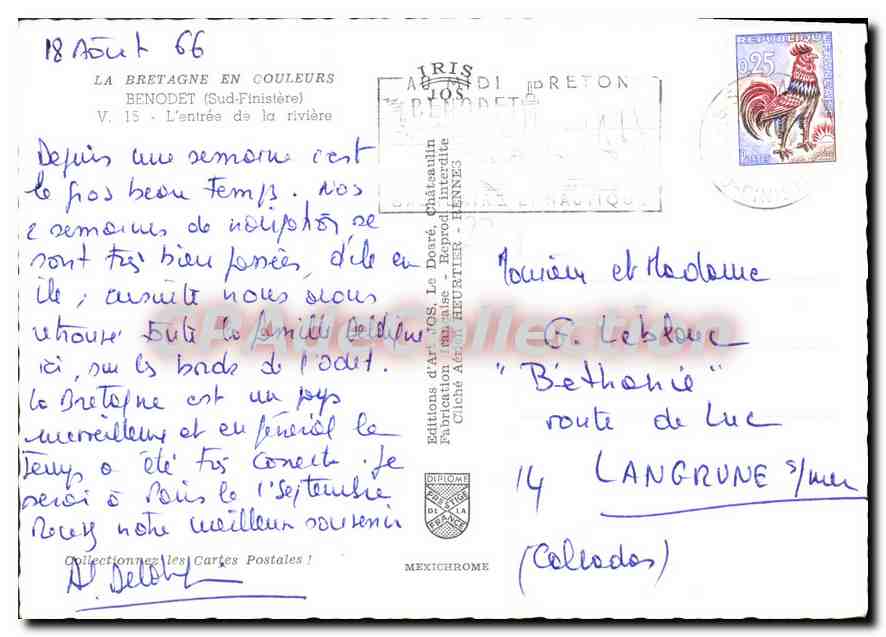 18 Août 66
LA BRETAGNE EN COULEURS
BENODET (Sud-Finistère)
V. 15 - L'entrée de la rivière
Depuis une semaine c'est
le gros beau temps. Nos
2 semaines de navigation se
sont très bien passées, d'île en
île, ensuite nous avons
retrouvé toute la famille
ici, sur les bords de l'Odet.
La Bretagne est un pays
merveilleux et en général le
temps a été très correct. Je
serai à Paris le 1er Septembre
Recevez notre meilleur souvenir
Collectionnez les Cartes Postales !
IRIS
IOS
Editions d'Art JOS, Le Doaré, Châteaulin
Fabrication française - Reprod. interdite
Cliché Aérien HEURTIER - RENNES
DIPLOME
PRESTIGE
DE LA
FRANCE
MEXICHROME
AU MIDI BRETON
BENODET
NAUTIQUE
REPUBLIQUE
FRANÇAISE
0,25
POSTES
Monsieur et Madame
G. Leblanc
"Béthanie"
route de Luc
14 LANGRUNE s/mer
(Calvados)
CPA Collection